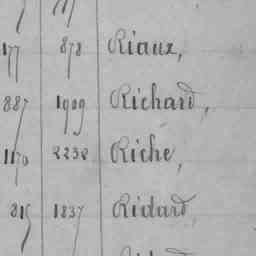 177 878 Riaux,
887 1909 Richard,
1170 2232 Riché,
815 1837 Ridard,